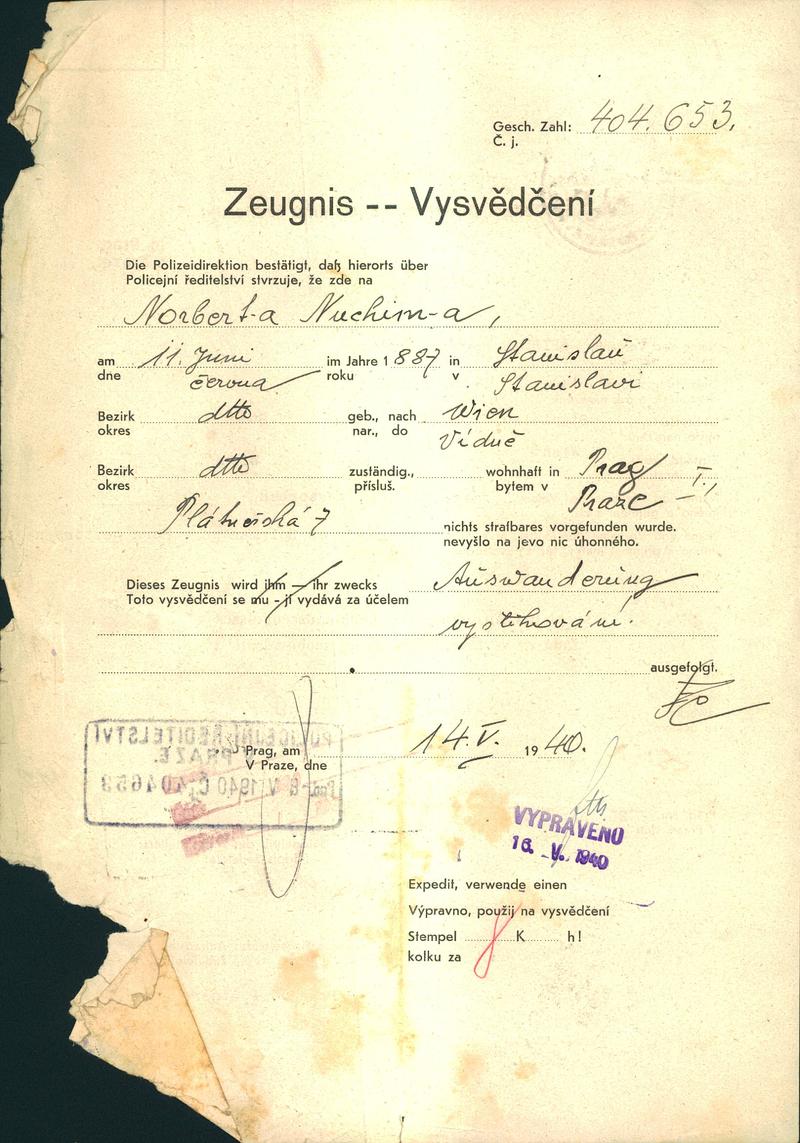 Gesch. Zahl: 404.653.
Č. j.
Zeugnis -- Vysvědčení
Die Polizeidirektion bestätigt, daß hierorts über
Policejní ředitelství stvrzuje, že zde na
Norbert-a Nuchim-a,
am 11. Juni im Jahre 1887 in Stanislau
dne června roku v Stanislavi
Bezirk dtto geb., nach Wien
okres nar., do Vídně
Bezirk dtto zuständig., wohnhaft in Prag I.,
okres přísluš. bytem v Praze
Plátneřská 7 nichts strafbares vorgefunden wurde.
nevyšlo na jevo nic úhonného.
Dieses Zeugnis wird ihm — ihr zwecks Auswanderung
Toto vysvědčení se mu - jí vydává za účelem
vystěhování.
ausgefolgt.
POLICEJNÍ ŘEDITELSTVÍ
PRAZE.
V 1940 Č. 404653
Prag, am 14.V. 1940.
V Praze, dne
VYPRAVENO
16. V. 1940
Expedit, verwende einen
Výpravno, použij na vysvědčení
Stempel K h!
kolku za